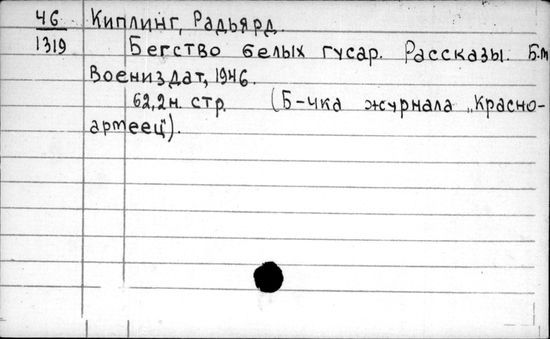 46 Киплинг, Радьярд.
1319 Бегство белых гусар. Рассказы. Б.м
Воениздат, 1946.
62,2н. стр. (Б-чка журнала „Красно-
армеец").